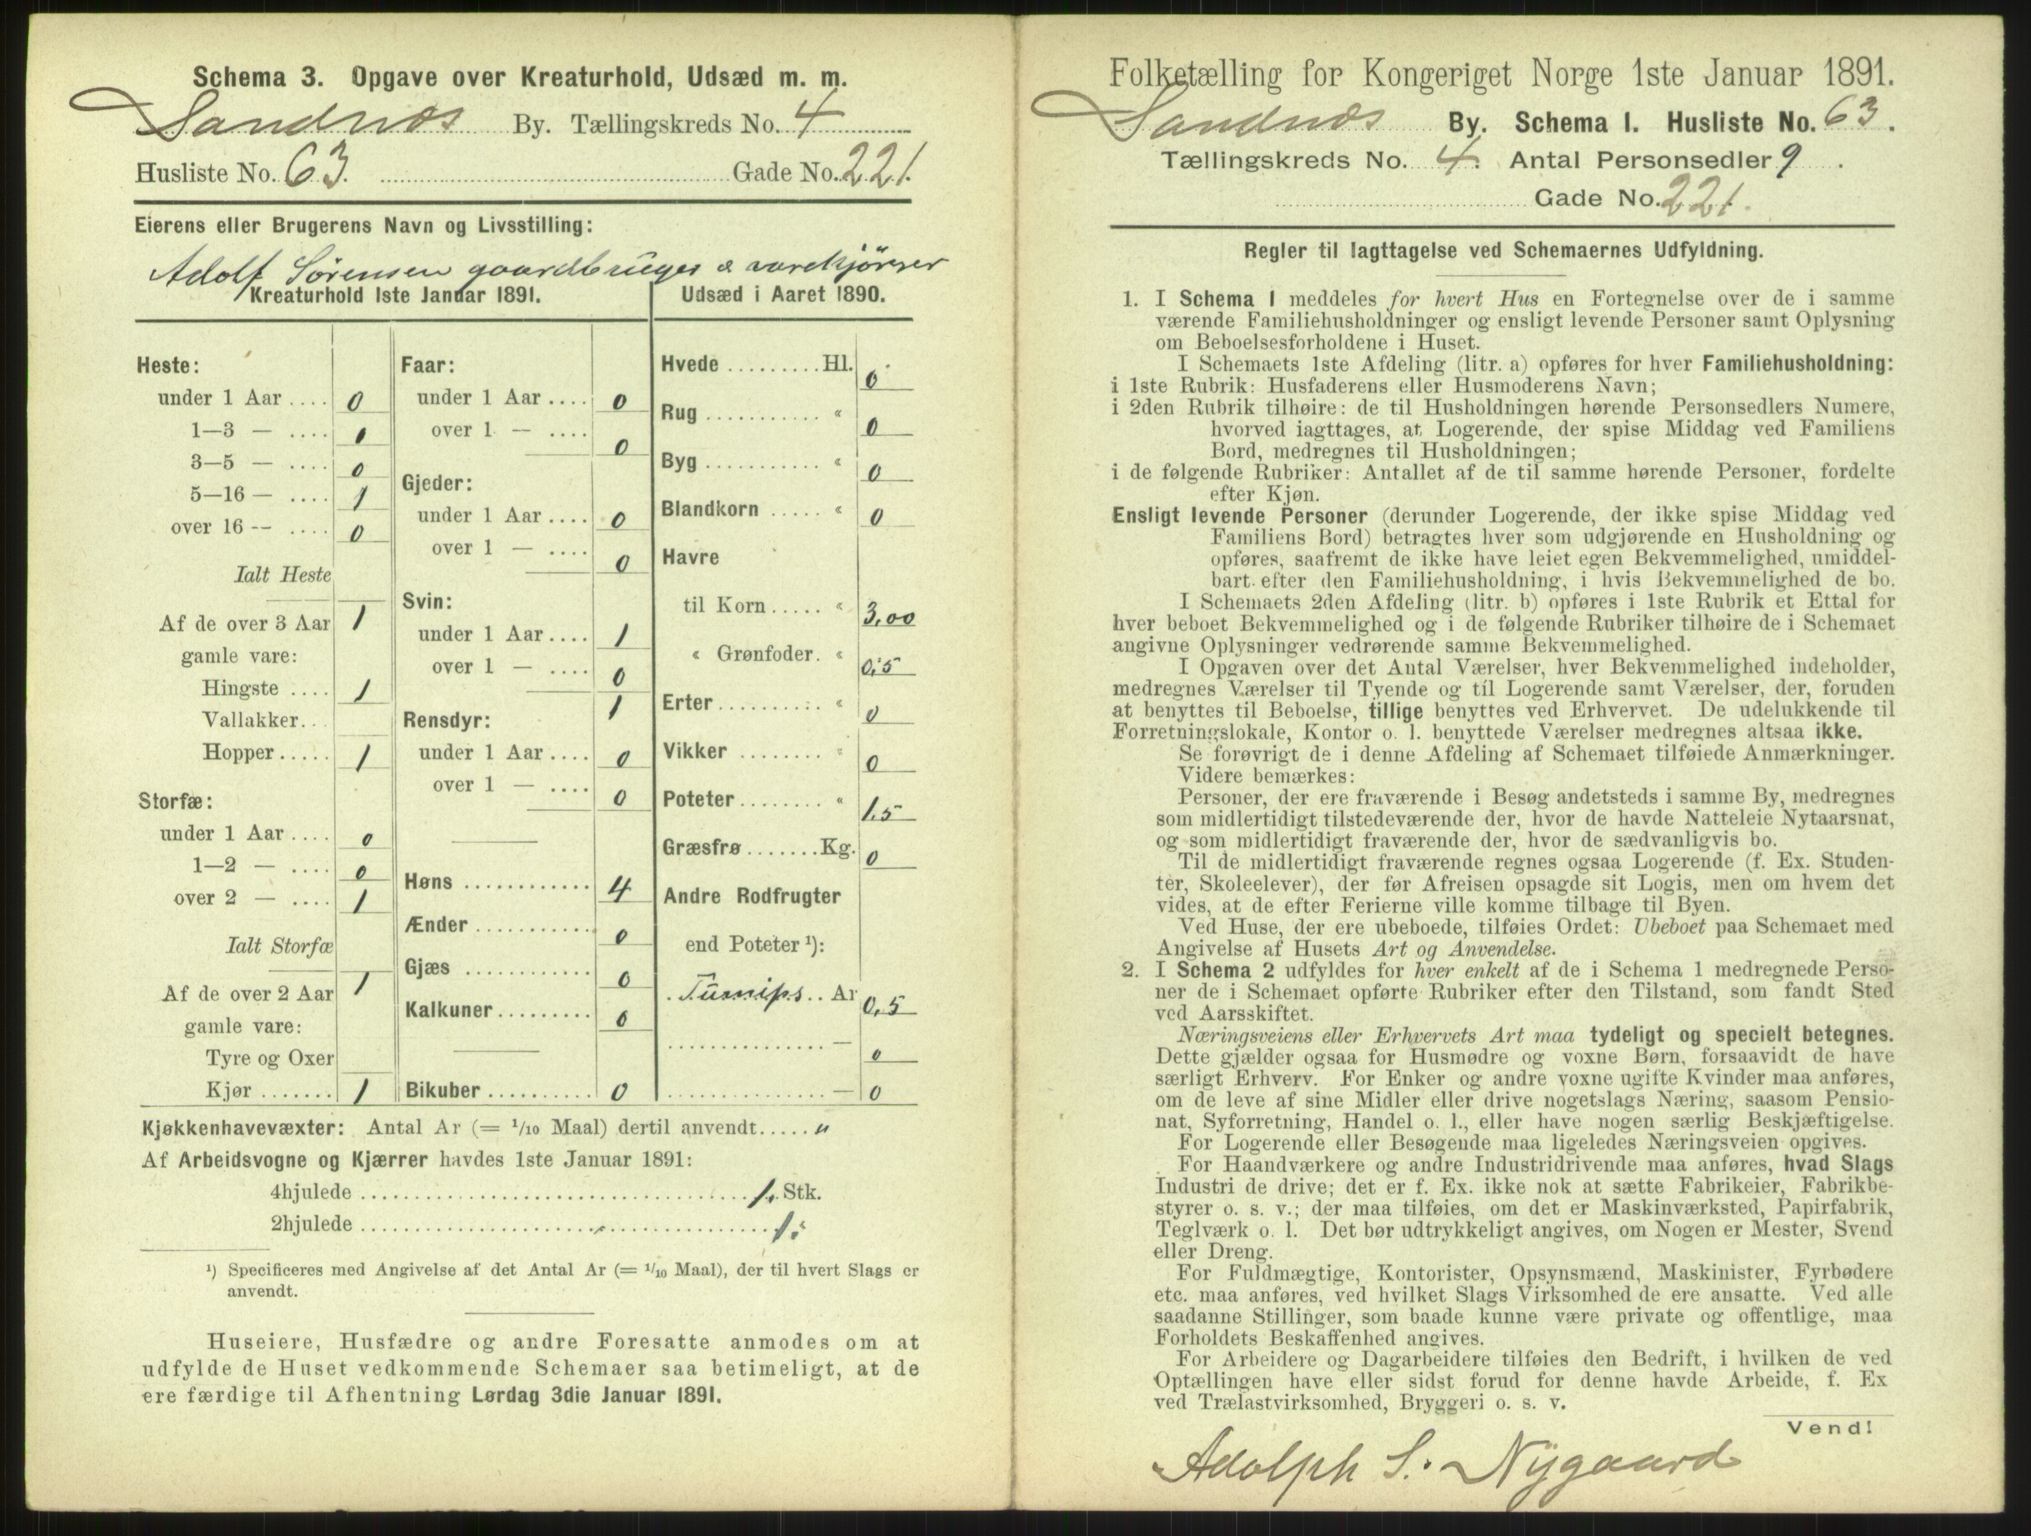 Schema 3. Opgave over Kreaturhold, Udsæd m. m.
Sandnæs By. Tællingskreds No. 4
Husliste No. 63. Gade No. 221.
Eierens eller Brugerens Navn og Livsstilling:
Adolf Sørensen gaardbruger & varekjører
Kreaturhold 1ste Januar 1891.
Heste:
under 1 Aar .... 0
1—3 — .... 0
3—5 — .... 0
5—16 — .... 1
over 16 -- .... 0
Ialt Heste 1
Af de over 3 Aar
gamle vare:
Hingste .... 1
Vallakker...
Hopper ..... 1
Storfæ:
under 1 Aar .... 0
1—2 — .... 0
over 2 — .... 1
Ialt Storfæ 1
Af de over 2 Aar
gamle vare:
Tyre og Oxer
Kjør ....... 1
Faar:
under 1 Aar .... 0
over 1 — .... 0
Gjeder:
under 1 Aar .... 0
over 1 — .... 0
Svin:
under 1 Aar .... 1
over 1 — .... 0
1
Rensdyr:
under 1 Aar .... 0
over 1 — .... 0
Høns ............ 4
Ænder ........... 0
Gjæs ............ 0
Kalkuner ......... 0
Bikuber .......... 0
Udsæd i Aaret 1890.
Hvede ......... Hl. 0
Rug ........... " 0
Byg ........... " 0
Blandkorn ..... " 0
Havre
til Korn ..... " 3,00
" Grønfoder. " 0,5
Erter .......... " 0
Vikker ........ " 0
Poteter ........ " 1,5
Græsfrø ....... Kg. 0
Andre Rodfrugter
end Poteter ¹):
Turnips .. Ar 0,5
............... — 0
............... — 0
Kjøkkenhavevæxter: Antal Ar (= 1/10 Maal) dertil anvendt..... "
Af Arbeidsvogne og Kjærrer havdes 1ste Januar 1891:
4hjulede ........................................ 1. Stk.
2hjulede ........................................ 1.
¹) Specificeres med Angivelse af det Antal Ar (= 1/10 Maal), der til hvert Slags er
anvendt.
Huseiere, Husfædre og andre Foresatte anmodes om at
udfylde de Huset vedkommende Schemaer saa betimeligt, at de
ere færdige til Afhentning Lørdag 3die Januar 1891.
Folketælling for Kongeriget Norge 1ste Januar 1891.
Sandnæs By. Schema I. Husliste No. 63.
Tællingskreds No. 4. Antal Personsedler 9.
Gade No. 221.
Regler til Iagttagelse ved Schemaernes Udfyldning.
1. I Schema 1 meddeles for hvert Hus en Fortegnelse over de i samme
værende Familiehusholdninger og ensligt levende Personer samt Oplysning
om Beboelsesforholdene i Huset.
I Schemaets 1ste Afdeling (litr. a) opføres for hver Familiehusholdning:
i 1ste Rubrik: Husfaderens eller Husmoderens Navn;
i 2den Rubrik tilhøire: de til Husholdningen hørende Personsedlers Numere,
hvorved iagttages, at Logerende, der spise Middag ved Familiens
Bord, medregnes til Husholdningen;
i de følgende Rubriker: Antallet af de til samme hørende Personer, fordelte
efter Kjøn.
Ensligt levende Personer (derunder Logerende, der ikke spise Middag ved
Familiens Bord) betragtes hver som udgjørende en Husholdning og
opføres, saafremt de ikke have leiet egen Bekvemmelighed, umiddel-
bart efter den Familiehusholdning, i hvis Bekvemmelighed de bo.
I Schemaets 2den Afdeling (litr. b) opføres i 1ste Rubrik et Ettal for
hver beboet Bekvemmelighed og i de følgende Rubriker tilhøire de i Schemaet
angivne Oplysninger vedrørende samme Bekvemmelighed.
I Opgaven over det Antal Værelser, hver Bekvemmelighed indeholder,
medregnes Værelser til Tyende og til Logerende samt Værelser, der, foruden
at benyttes til Beboelse, tillige benyttes ved Erhvervet. De udelukkende til
Forretningslokale, Kontor o. l. benyttede Værelser medregnes altsaa ikke.
Se forøvrigt de i denne Afdeling af Schemaet tilføiede Anmærkninger.
Videre bemærkes:
Personer, der ere fraværende i Besøg andetsteds i samme By, medregnes
som midlertidigt tilstedeværende der, hvor de havde Natteleie Nytaarsnat,
og som midlertidigt fraværende der, hvor de sædvanligvis bo.
Til de midlertidigt fraværende regnes ogsaa Logerende (f. Ex. Studen-
ter, Skoleelever), der før Afreisen opsagde sit Logis, men om hvem det
vides, at de efter Ferierne ville komme tilbage til Byen.
Ved Huse, der ere ubeboede, tilføies Ordet: Ubeboet paa Schemaet med
Angivelse af Husets Art og Anvendelse.
2. I Schema 2 udfyldes for hver enkelt af de i Schema 1 medregnede Perso-
ner de i Schemaet opførte Rubriker efter den Tilstand, som fandt Sted
ved Aarsskiftet.
Næringsveiens eller Erhvervets Art maa tydeligt og specielt betegnes.
Dette gjælder ogsaa for Husmødre og voxne Børn, forsaavidt de have
særligt Erhverv. For Enker og andre voxne ugifte Kvinder maa anføres,
om de leve af sine Midler eller drive nogetslags Næring, saasom Pensio-
nat, Syforretning, Handel o. l., eller have nogen særlig Beskjæftigelse.
For Logerende eller Besøgende maa ligeledes Næringsveien opgives.
For Haandværkere og andre Industridrivende maa anføres, hvad Slags
Industri de drive; det er f. Ex. ikke nok at sætte Fabrikeier, Fabrikbe-
styrer o. s. v.; der maa tilføies, om det er Maskinværksted, Papirfabrik,
Teglværk o. l. Det bør udtrykkeligt angives, om Nogen er Mester, Svend
eller Dreng.
For Fuldmægtige, Kontorister, Opsynsmænd, Maskinister, Fyrbødere
etc. maa anføres, ved hvilket Slags Virksomhed de ere ansatte. Ved alle
saadanne Stillinger, som baade kunne være private og offentlige, maa
Forholdets Beskaffenhed angives.
For Arbeidere og Dagarbeidere tilføies den Bedrift, i hvilken de ved
Optællingen have eller sidst forud for denne havde Arbeide, f. Ex
ved Trælastvirksomhed, Bryggeri o. s. v.
Vend!
Adolph S. Nygaard